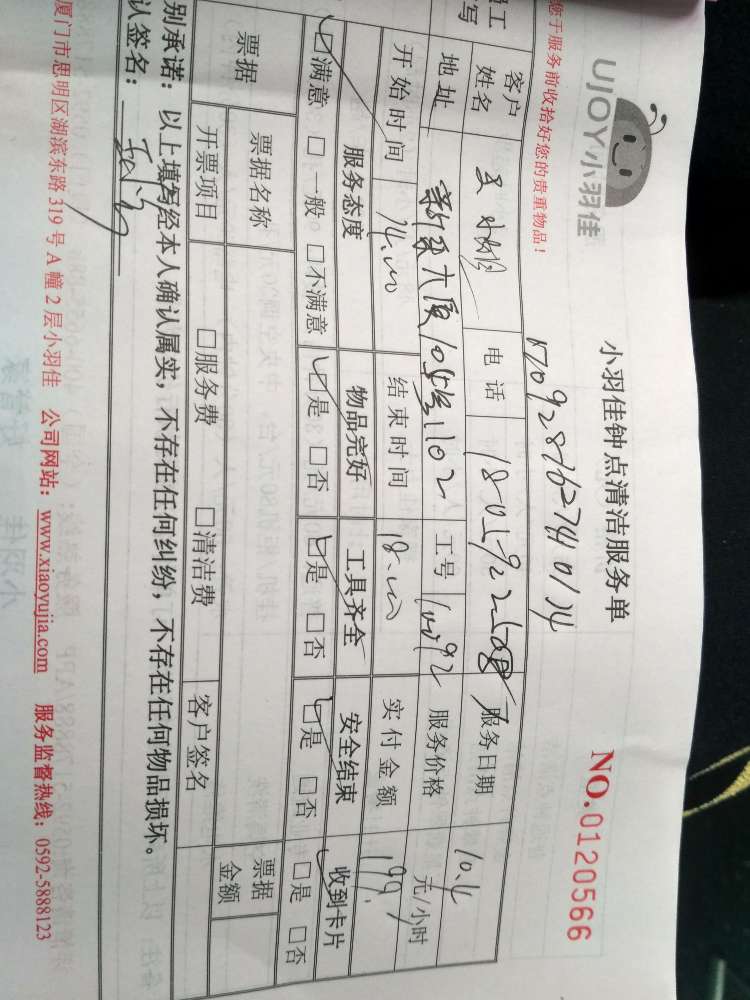 UJOY小羽佳
小羽佳钟点清洁服务单
NO.0120566
您于服务前收拾好您的贵重物品！
1709287627410134
员工
填写
客户姓名 电话 服务日期 10.4
地址 工号 服务价格 元/小时
开始时间 14.00 结束时间 18.00 实付金额 199.
服务态度 物品完好 工具齐全 安全结束 收到卡片
☑满意 □一般。 □不满意 ☑是 □否 ☑是 □否 ☑是 □否 □是 □否
票据 票据名称 票据金额
开票项目 □服务费 □清洁费 客户签名
别承诺：以上填写经本人确认属实，不存在任何纠纷，不存在任何物品损坏。
认签名：
厦门市思明区湖滨东路 319 号 A 幢 2 层小羽佳 公司网站：www.xiaoyujia.com 服务监督热线：0592-5888123